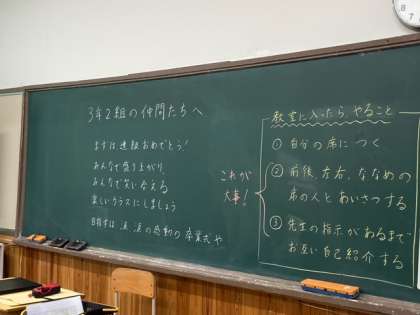 3年2組の仲間たちへ
まずは進級おめでとう!
みんなで盛り上がり、
みんなで笑い合える
楽しいクラスにしましょう
目指すは涙、涙の感動の卒業式や
これが
大事!
教室に入ったら、やること
① 自分の席につく
② 前後、左右、ななめの
席の人とあいさつする
③ 先生の指示があるまで
お互い自己紹介する